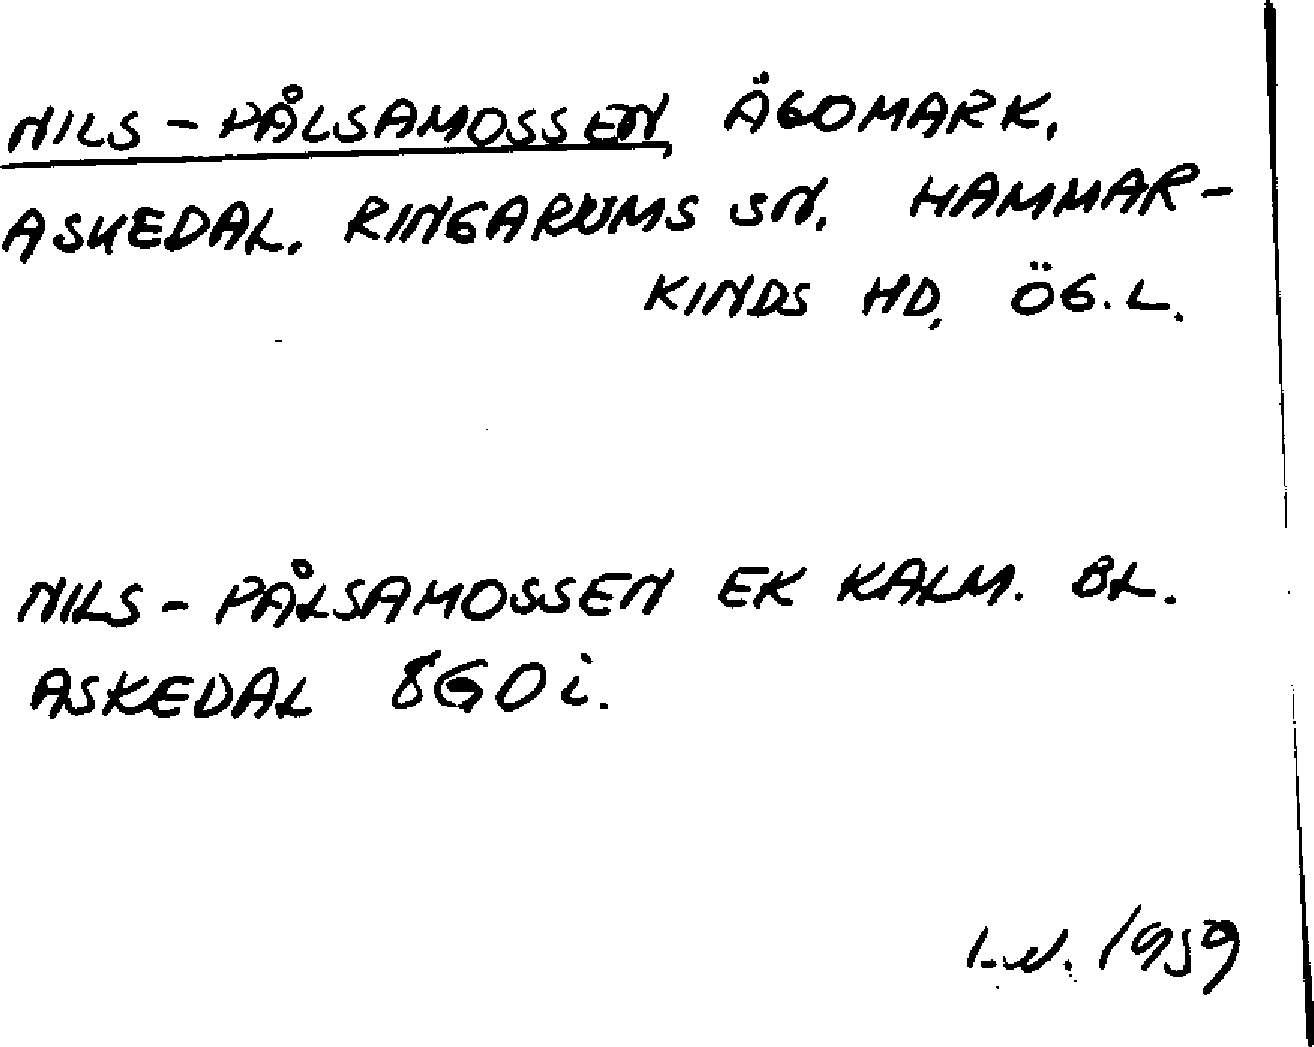 NILS - PÅLSAMOSSEN, ÄGOMARK,
ASKEDAL. RINGARUMS SN. HAMMAR-
KINDS HD, ÖG. L.
NILS - PÅLSAMOSSEN EK KALM. BL.
ASKEDAL 8G0i.
1959